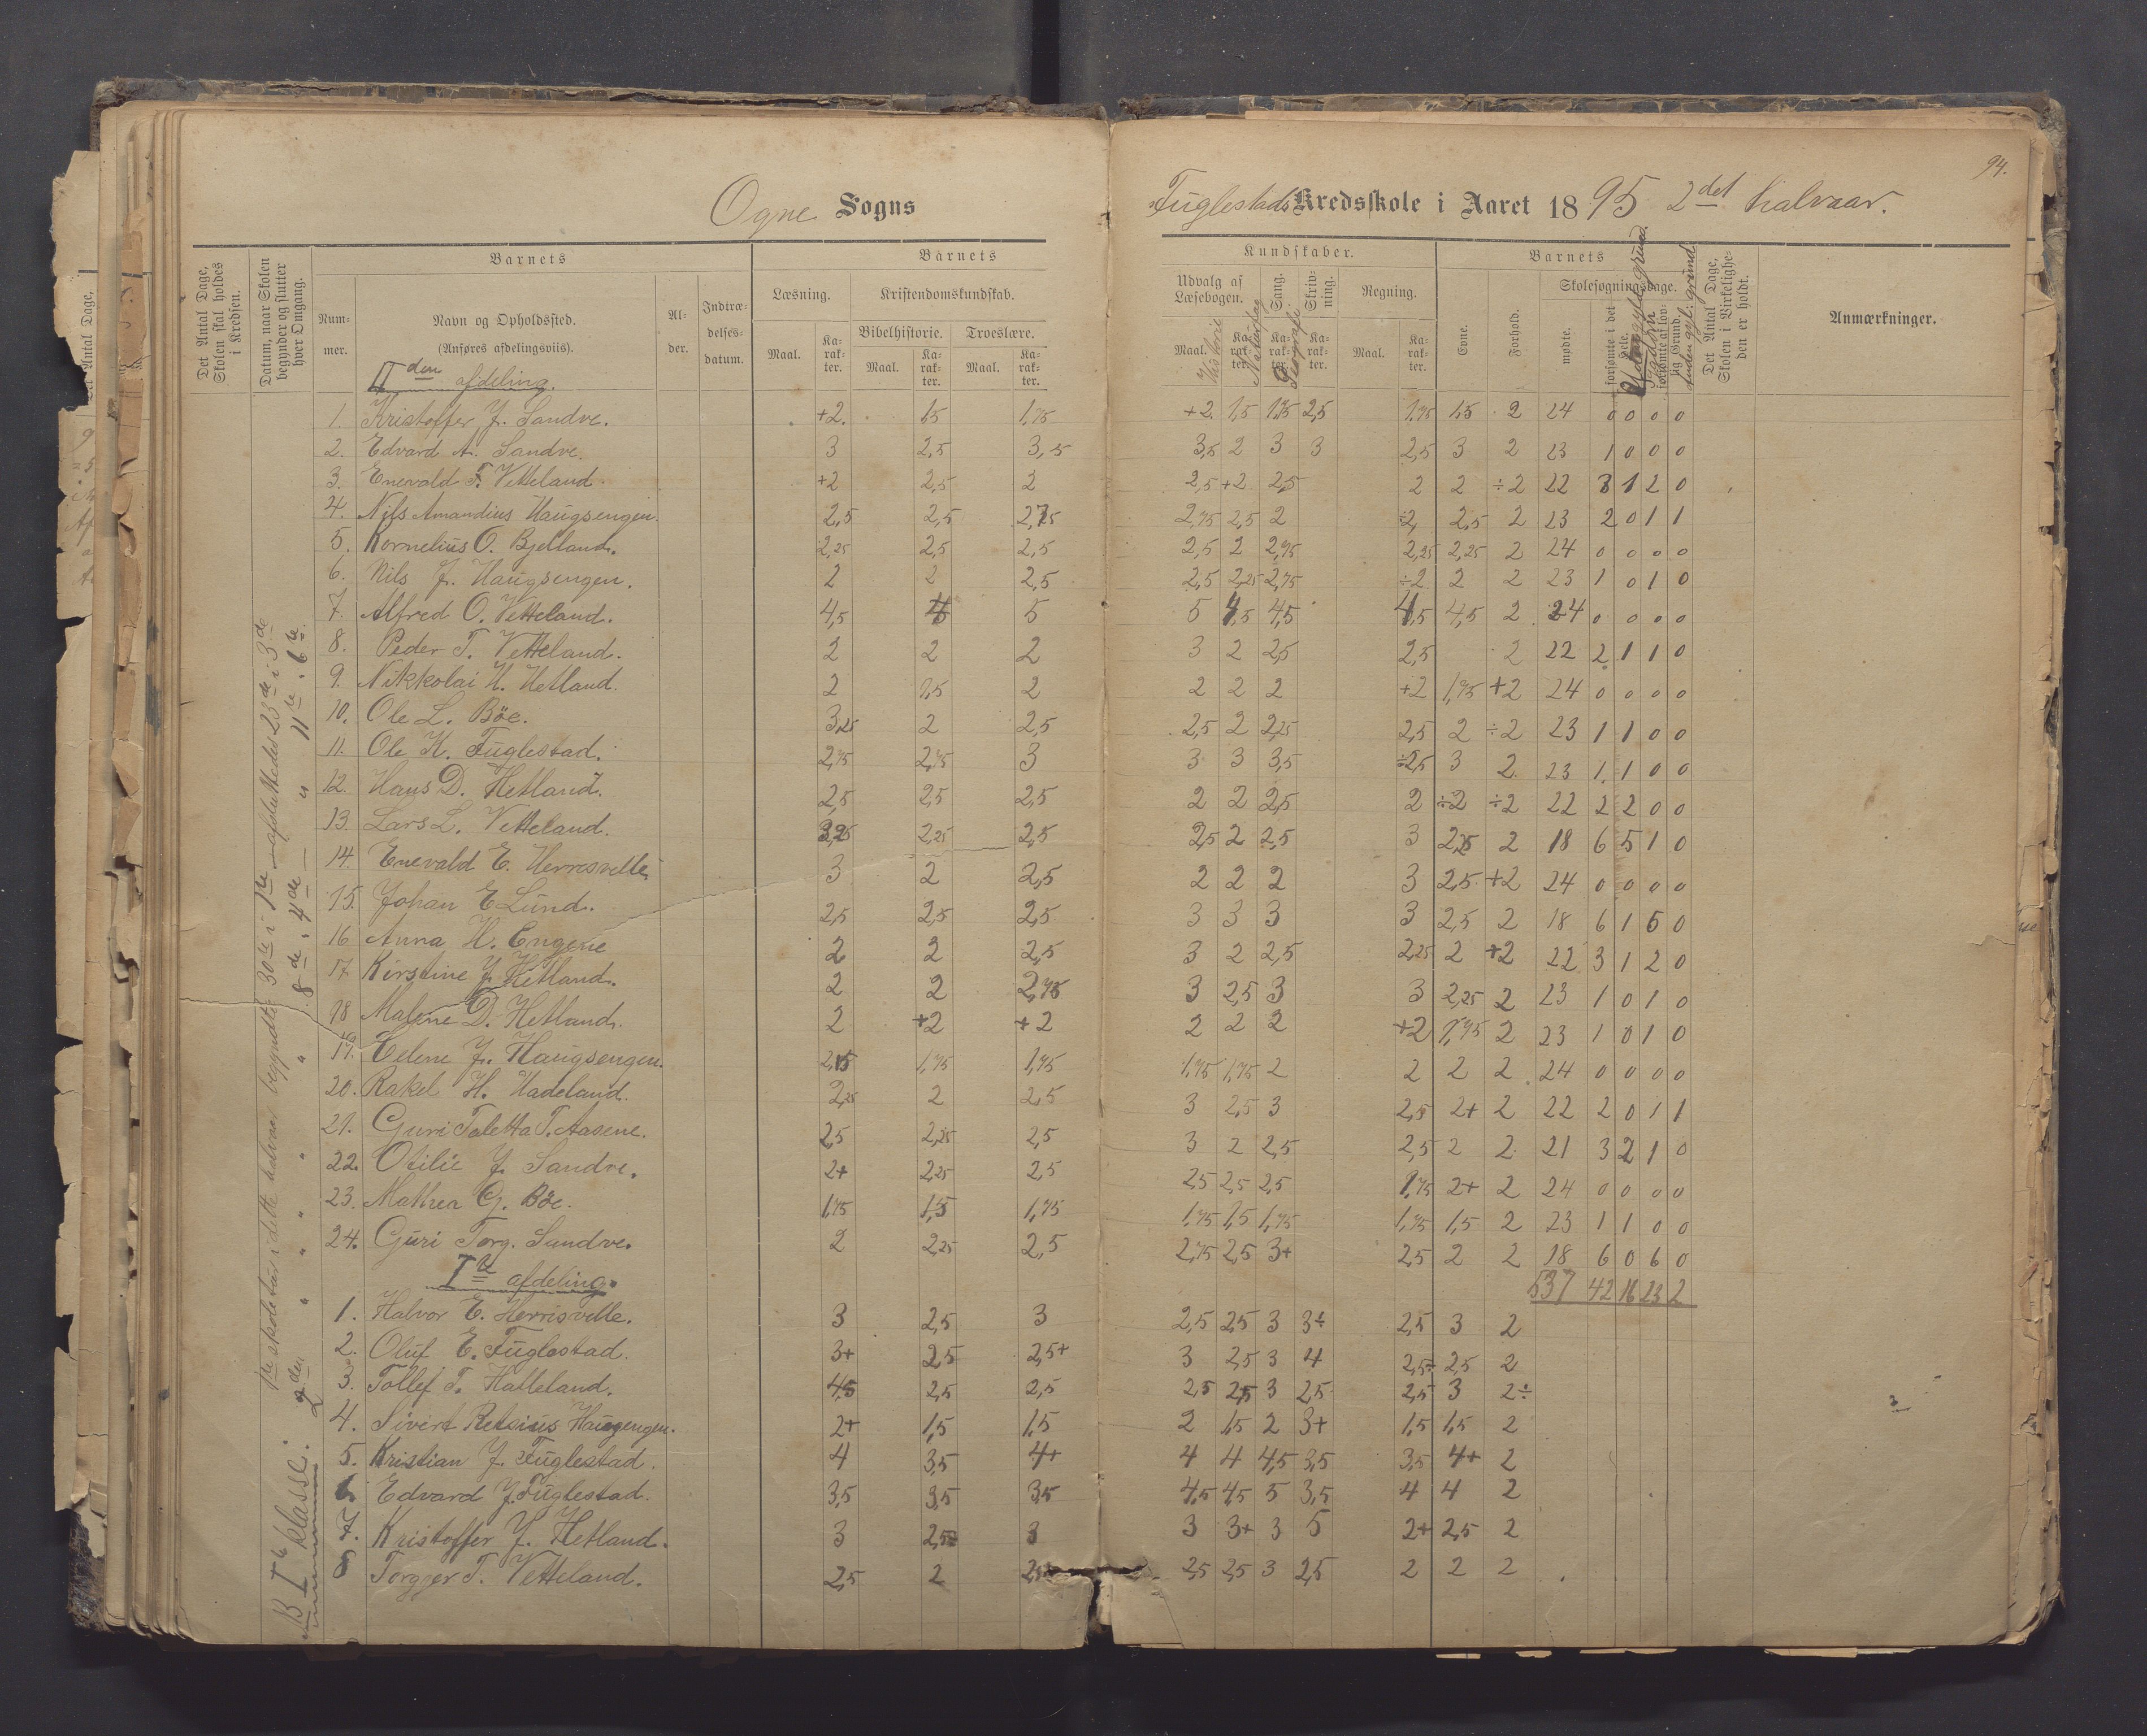 94.
Ogne Sogns Fuglestads Kredsskole i Aaret 1895 2det halvaar.
Det Antal Dage, Skolen skal holdes i Kredsen.
Datum, naar Skolen begynder og slutter hver Omgang.
Barnets
Nummer.
Navn og Opholdssted. (Anføres afdelingsviis).
Alder.
Indtrædelsesdatum.
Barnets
Læsning.
Kristendomskundskab.
Bibelhistorie. Troeslære.
Maal. Karakter. Maal. Karakter. Maal. Karakter.
Kundskaber.
Udvalg af Læsebogen. Sang. Skrivning. Regning.
Historie Geografi
Maal. Karakter. Karakter. Karakter. Maal. Karakter.
Barnets
Evne. Forhold.
Skolesøgningsdage.
mødte. forsømte i det Hele. forsømte af lovlig Grund.
Det Antal Dage, Skolen i Virkeligheden er holdt.
Anmærkninger.
IIden afdeling.
1. Kristoffer J. Sandve. +2. 1,5 1,75 +2 1,5 1,75 2,5 1,75 1,5 2 24 0 0 0 0
2. Edvard A. Sandve. 3 2,5 3,5 3,5 2 3 3 2,5 3 2 23 1 0 0 0
3. Enevald T. Vetteland. +2 2,5 2 2,5 +2 2,5 2 2 ÷2 22 3 1 2 0
4. Nils Amandius Haugsengen. 2,5 2,5 2,75 2,75 2,5 2 ÷2 2,5 2 23 2 0 1 1
5. Kornelius O. Bjelland. 2,25 2,5 2,5 2,5 2 2,75 2,25 2,25 2 24 0 0 0 0
6. Nils J. Haugsengen. 2 2 2,5 2,5 2,25 2,75 ÷2 2 2 23 1 0 1 0
7. Alfred O. Vetteland. 4,5 4 5 5 4,5 4,5 4,5 4,5 2 24 0 0 0 0
8. Peder T. Vetteland. 2 2 2 3 2 2,5 2,5 2 22 2 1 1 0
9. Nikkolai H. Hetland. 2 1,5 2 2 2 2 +2 1,75 +2 24 0 0 0 0
10. Ole L. Böe. 3,25 2 2,5 2,5 2 2,25 2,5 2 ÷2 23 1 1 0 0
11. Ole K. Fuglestad. 2,75 2,75 3 3 3 3,5 ÷2,5 3 2 23 1 1 0 0
12. Hans D. Hetland. 2,5 2,5 2,5 2 2 2,5 2 ÷2 ÷2 22 2 2 0 0
13. Lars L. Vetteland. 3,25 2,25 2,5 2,5 2 2,5 3 2,25 2 18 6 5 1 0
14. Enevald E. Herresvelle. 3 2 2,5 2 2 2 3 2,5 +2 24 0 0 0 0
15. Johan E Lund. 2,5 2,5 2,5 3 3 3 3 2,5 2 18 6 1 5 0
16 Anna H. Engene 2 2 2,5 3 2 2,5 2,25 2 +2 22 3 1 2 0
17 Kirstine J. Hetland. 2 2 2,75 3 2,5 3 3 2,25 2 23 1 0 1 0
18 Malene D. Hetland. 2 +2 +2 2 2 2 +2 1,75 2 23 1 0 1 0
19. Eelene J. Haugsengen. 1,75 1,75 1,75 1,75 2 2 2 2 24 0 0 0 0
20. Rakel H. Hadeland. 2,25 2 2,5 3 2,5 3 2,5 2+ 2 22 2 0 1 1
21. Guri Taletta T. Aasene. 2,5 2,25 2,5 3 2 2,5 2,5 2 2 21 3 2 1 0
22. Otilie J. Sandve. 2+ 2,25 2,5 2,5 2,5 2,5 1,75 2+ 2 24 0 0 0 0
23. Mathea G. Böe. 1,75 1,5 1,75 1,75 1,5 1,75 1,75 1,5 2 23 1 1 0 0
24. Guri Torg. Sandve. 2 2,25 2,5 2,75 2,5 3+ 2,5 2 2 18 6 0 6 0
537 42 16 23 2
Ite afdeling.
1. Halvor E. Herrisvelle. 3 2,5 3 2,5 2,5 3 3÷ 2,5 3 2
2. Oluf E. Fuglestad. 3+ 2,5 2,5+ 3 2,5 3 4 2,5÷ 2,5 2
3. Tollef T. Hatleland. 4,5 2,5 2,5 2,5 2,5 3 2,5 2,5 3 2÷
4. Sivert Retsius Haugengen. 2+ 1,5 1,5 2 1,5 2 3+ 1,5 1,5 2
5. Kristian J. Fuglestad. 4 3,5 4+ 4 4 4,5 3,5 3,5 4+ 2
6 Edvard J. Fuglestad. 3,5 3,5 3,5 4,5 4,5 5 3,5 4 4 2
7. Kristoffer J. Hetland. 3 2,5 3 3 3+ 3 5 2+ 2,5 2
8 Torger T. Vetteland. 2,5 2 2,5 2,5 3 2,5 2 2 2
1ste skoletur i dette halvaar begyndte 30te i 7de – afsluttedes 23de i 3de
2den " " " " " 8de " 4de — " " 11te " 6te
NB Ite klasse: